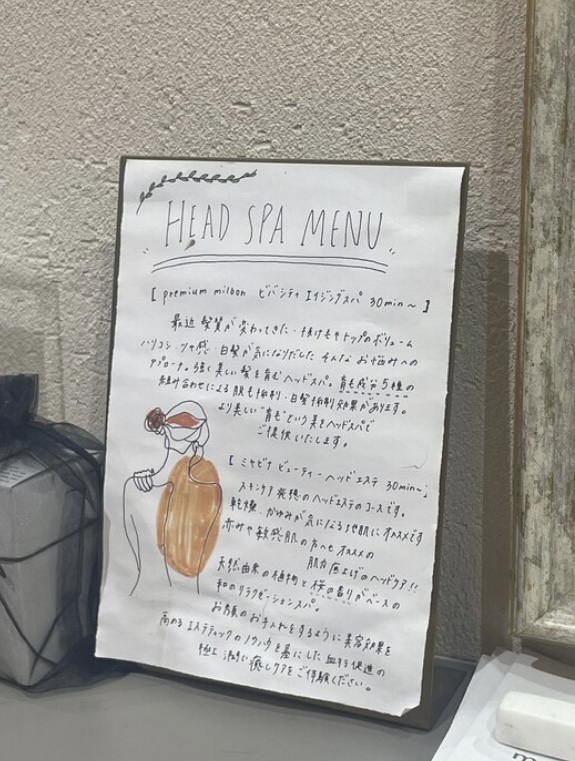 HEAD SPA MENU
[ premium milbon ビバシティ エイジングスパ 30min〜 ]
最近 髪質が変わってきた・抜け毛やトップのボリューム
ハリコシ・ツヤ感・白髪が気になりだした そんな お悩みへの
アプローチ。強く美しい髪を育むヘッドスパ。育毛成分5種の
組み合わせによる 脱毛抑制・白髪抑制効果があります。
より美しい"育毛"という美をヘッドスパで
ご提供いたします。
[ ミヤビナ ビューティーヘッドエステ 30min〜 ]
スキンケア発想のヘッドエステのコースです。
乾燥、かゆみが気になる地肌にオススメです
赤みや敏感肌の方へもオススメの
肌力底上げのヘッドケア!!
天然由来の植物と桜の香りがベースの
和のリラクゼーションスパ。
お顔のお手入れをするように美容効果を
高めるエステティックのノウハウを基にした血行促進の
極上 癒しケアをご体験ください。
m